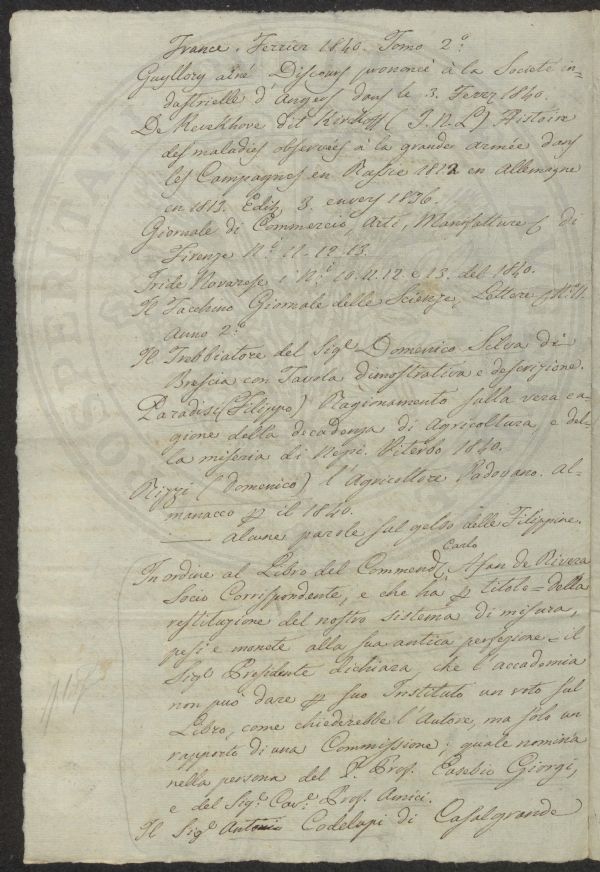 France. Ferrier 1840. Tomo 2.º
Guyllory ainé Discours prononcé à la Societé in-
dustrielle d'Angers dans le 3. Ferr 1840.
De Kerckhove dit Kirkhoff (J. R. L.) Histoire
des maladies observées à la grande armée dans
les Campagnes en Russie 1812 en Allemagne
en 1813. Ediz. 3. envers 1836.
Giornale di Commercio, Arti, Manifatture di
Firenze N.i 11. 12. 13.
Iride Novarese i N.i 10. 11. 12 e 13. del 1840.
Il Facchino Giornale delle Scienze, Lettere N. 11.
Anno 2.º
Il Trebbiatore del Sig.e Domenico Silva di
Brescia con Tavola dimostrativa e descrizione.
Paradisi (Filippo) Ragionamento sulla vera ca-
gione della decadenza di Agricoltura e del-
la miseria di Nepi. Viterbo 1840.
Rizzi (Domenico) l'Agricoltore Padovano. Al-
manacco p il 1840.
—— Alcune parole sul gelso delle Filippine.
In ordine al Libro del Commend.e Carlo Afan de Rivera
Socio Corrispondente, e che ha p titolo = Della
restituzione del nostro sistema di misura,
pesi e monete alla sua antica perfezione = il
Sig.e Presidente dichiara che l'accademia
non può dare p suo Instituto un voto sul
Libro, come chiederebbe l'Autore, ma solo un
rapporto di una Commissione; quale nominia
nella persona del P. Prof. Eusebio Giorgi,
e del Sig.e Cav.e Prof. Amici.
Il Sig.e Antonio Codelupi di Casalgrande